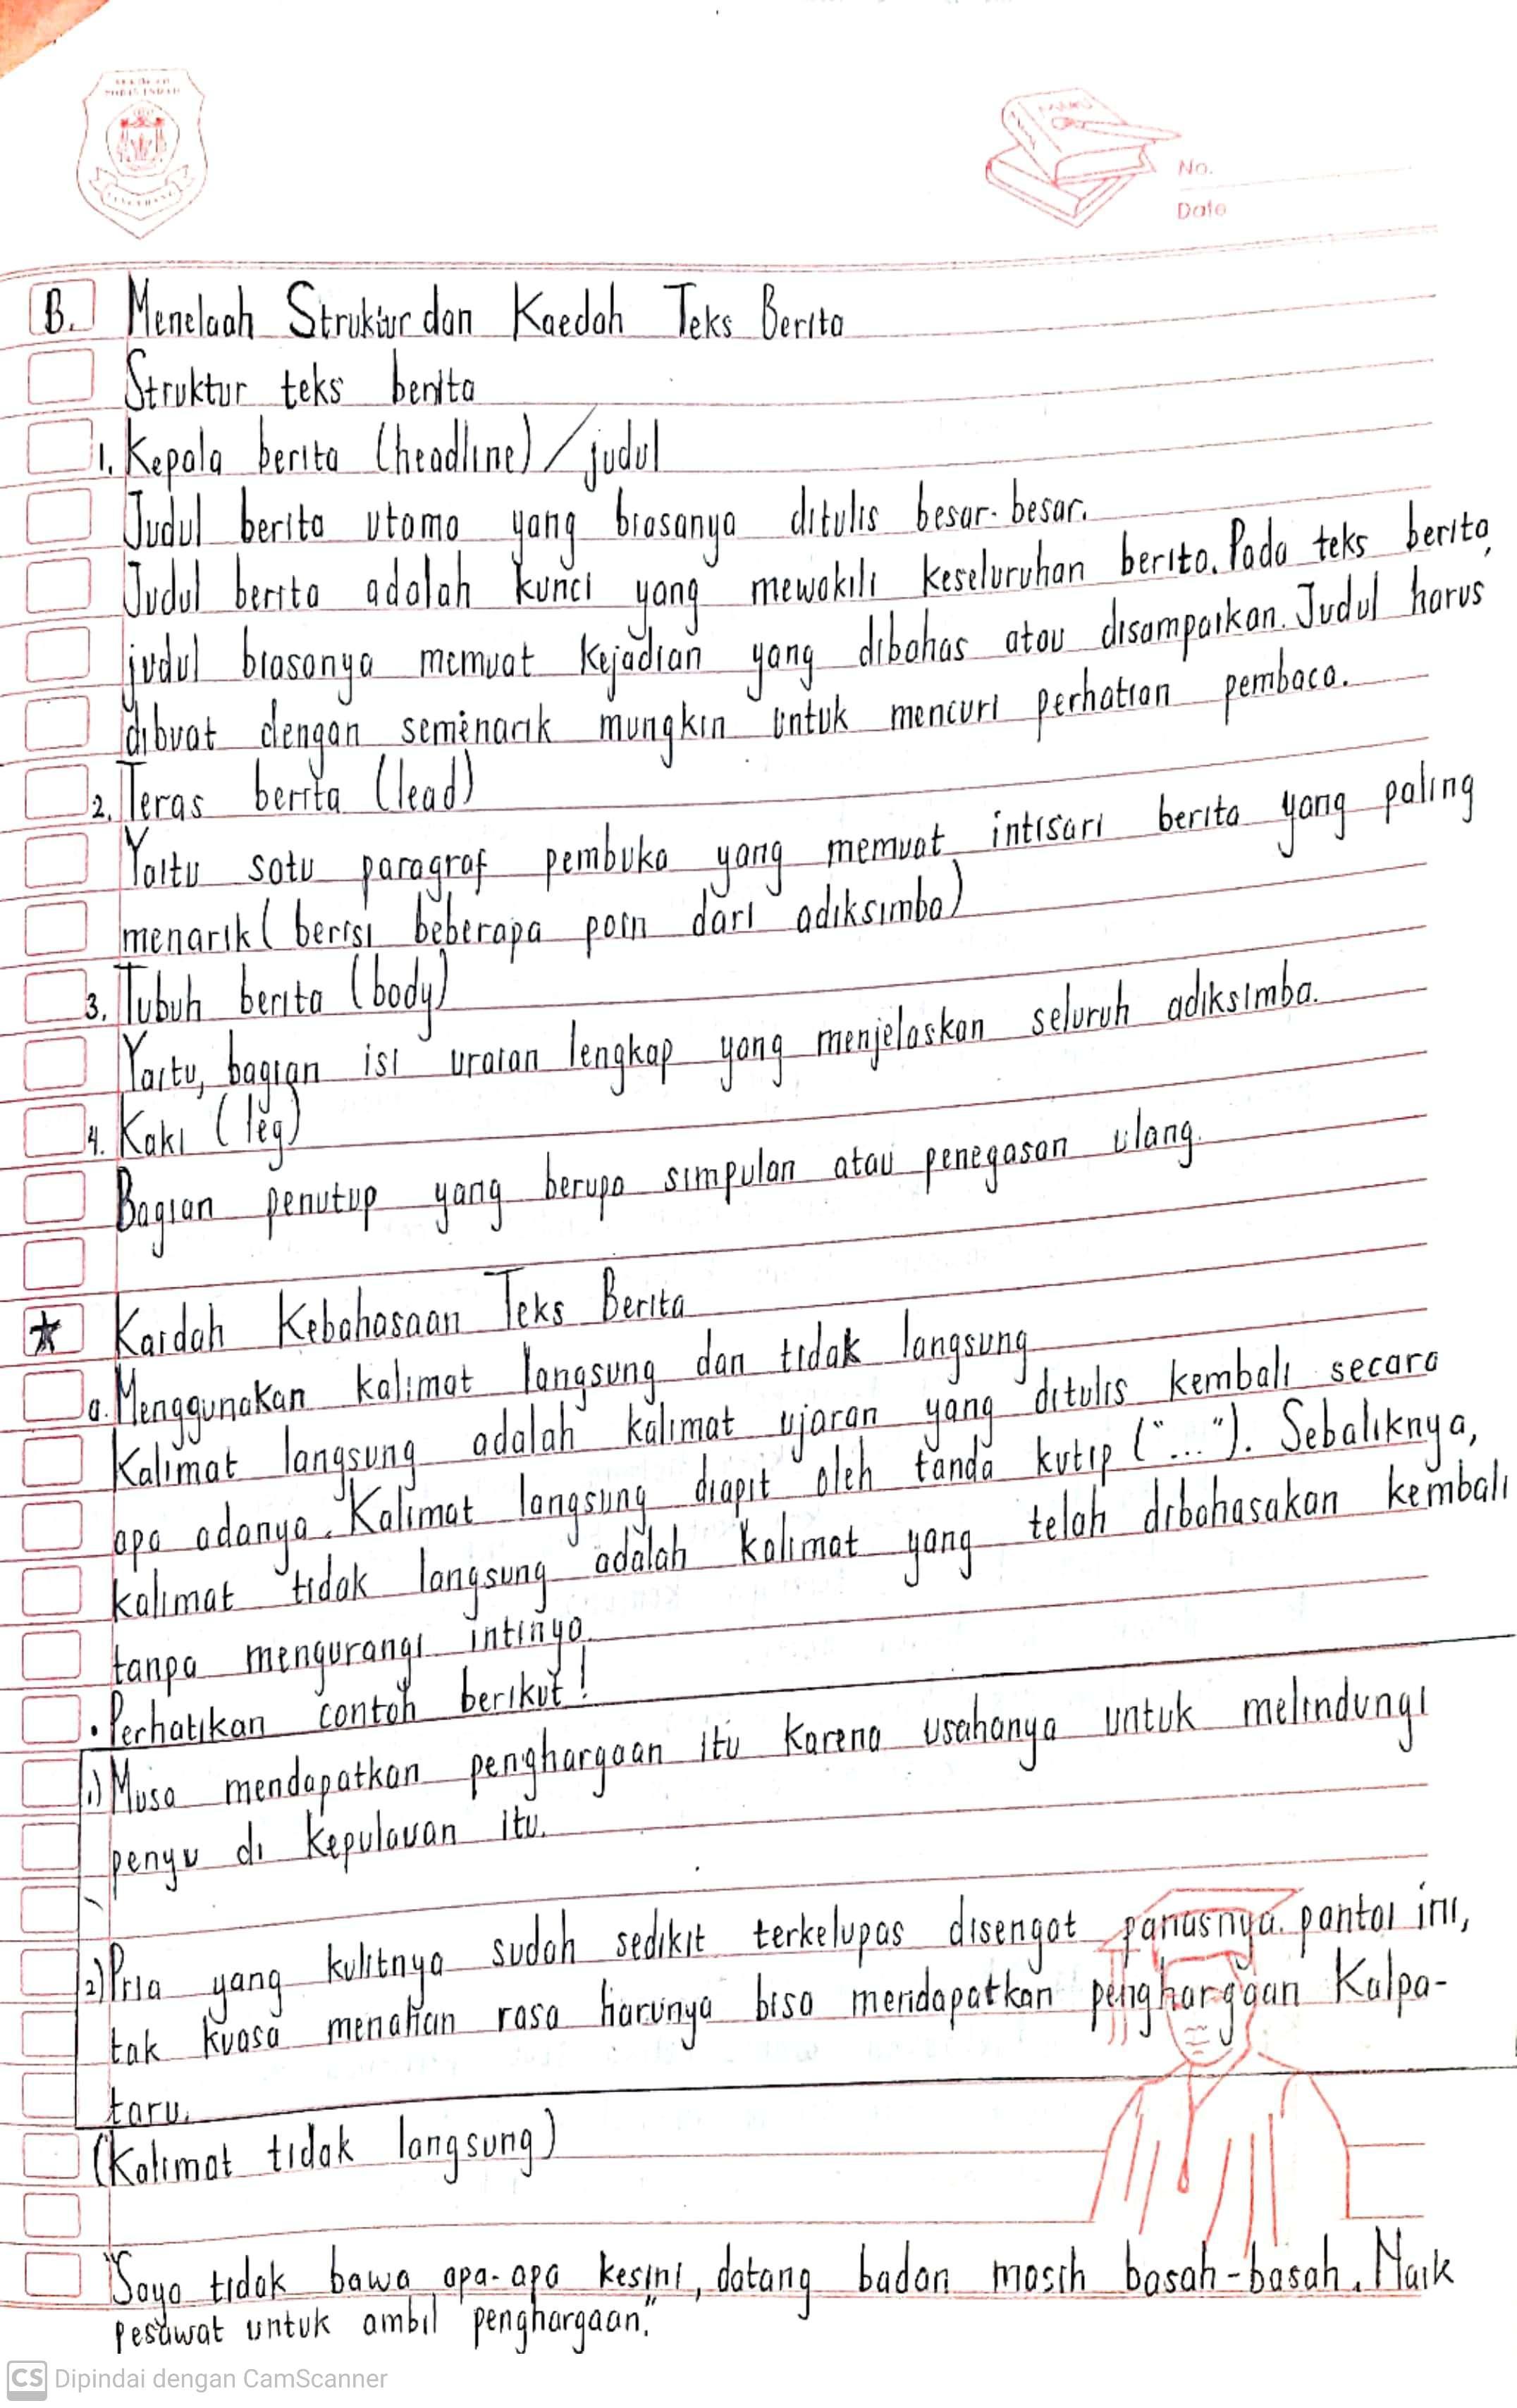 No.
Date
B. Menelaah Struktur dan Kaedah Teks Berita
Struktur teks berita
1. Kepala berita (headline) / judul
Judul berita utama yang biasanya ditulis besar-besar.
Judul berita adalah kunci yang mewakili keseluruhan berita. Pada teks berita,
judul biasanya memuat kejadian yang dibahas atau disampaikan. Judul harus
dibuat dengan semenarik mungkin untuk mencuri perhatian pembaca.
2. Teras berita (lead)
Yaitu satu paragraf pembuka yang memuat intisari berita yang paling
menarik ( berisi beberapa poin dari adiksimba)
3. Tubuh berita (body)
Yaitu, bagian isi uraian lengkap yang menjelaskan seluruh adiksimba.
4. Kaki (leg)
Bagian penutup yang berupa simpulan atau penegasan ulang.
★ Kaidah Kebahasaan Teks Berita
a. Menggunakan kalimat langsung dan tidak langsung
Kalimat langsung adalah kalimat ujaran yang ditulis kembali secara
apa adanya. Kalimat langsung diapit oleh tanda kutip ("..."). Sebaliknya,
kalimat tidak langsung adalah kalimat yang telah dibahasakan kembali
tanpa mengurangi intinya.
• Perhatikan contoh berikut!
1) Musa mendapatkan penghargaan itu karena usahanya untuk melindungi
penyu di kepulauan itu.
2) Pria yang kulitnya sudah sedikit terkelupas disengat panasnya pantai ini,
tak kuasa menahan rasa harunya bisa mendapatkan penghargaan Kalpa-
taru.
(Kalimat tidak langsung)
"Saya tidak bawa apa-apa kesini, datang badan masih basah-basah. Naik
pesawat untuk ambil penghargaan."
CS Dipindai dengan CamScanner